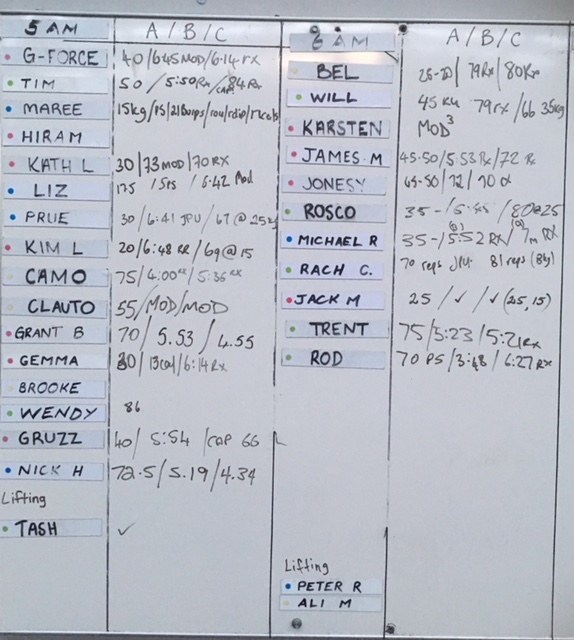 5 AM A/B/C
G-FORCE 40/6:45 MOD/6:14 RX
TIM 50 / 5:50 Rx / 84 Rx
CAP
MAREE 15kg/
HIRAM
KATH L 30/73 MOD/70 RX
LIZ / 6:42 Mod
PRUE 30/6:41 /67 @ 25kg
KIM L 20/6:48 /69 @ 15
CAMO 75/4:00 /5:36
CLAUTO 55/MOD/MOD
GRANT B 70/ 5.53 / 4.55
GEMMA 30/13cal/6:14 Rx
BROOKE
WENDY 86
GRUZZ 40/ 5:54 /CAP 66
NICK H 72.5/5.19/4.34
Lifting
TASH ✓
6 AM A/B/C
BEL / 79Rx / 80Rx
WILL 45 79rx /66 35kg
KARSTEN MOD³
JAMES M 45-50/5:53 Rx/72 Rx
JONESY /72/70
ROSCO 35-/ /80@25
MICHAEL R 35-/5:52 RX/ RX
RACH C. 70 reps 81 reps
JACK M 25 / ✓ / ✓ (25,15)
TRENT 75/5:23/5:21Rx
ROD 70 PS /3:48 / 6:27 Rx
Lifting
PETER R
ALI M